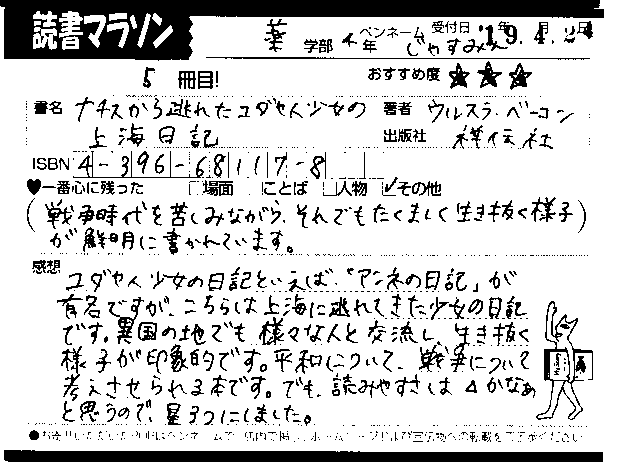 読書マラソン
薬 学部 4年 ペンネーム じゃすみん 受付日 '19年 4月 24日
5 冊目! おすすめ度 ★★★
書名 ナチスから逃れたユダヤ人少女の上海日記
著者 ウルスラ・ベーコン
出版社 祥伝社
ISBN 4-396-68117-8
♥一番心に残った □場面 □ことば □人物 ☑その他
(戦争時代を苦しみながら、それでもたくましく生き抜く様子)
が鮮明に書かれています。
感想
ユダヤ人少女の日記といえば、「アンネの日記」が
有名ですが、こちらは上海に逃れてきた少女の日記
です。異国の地でも様々な人と交流し、生き抜く
様子が印象的です。平和について、戦争について
考えさせられる本です。でも、読みやすさは△かなぁ
と思うので、星3つにしました。